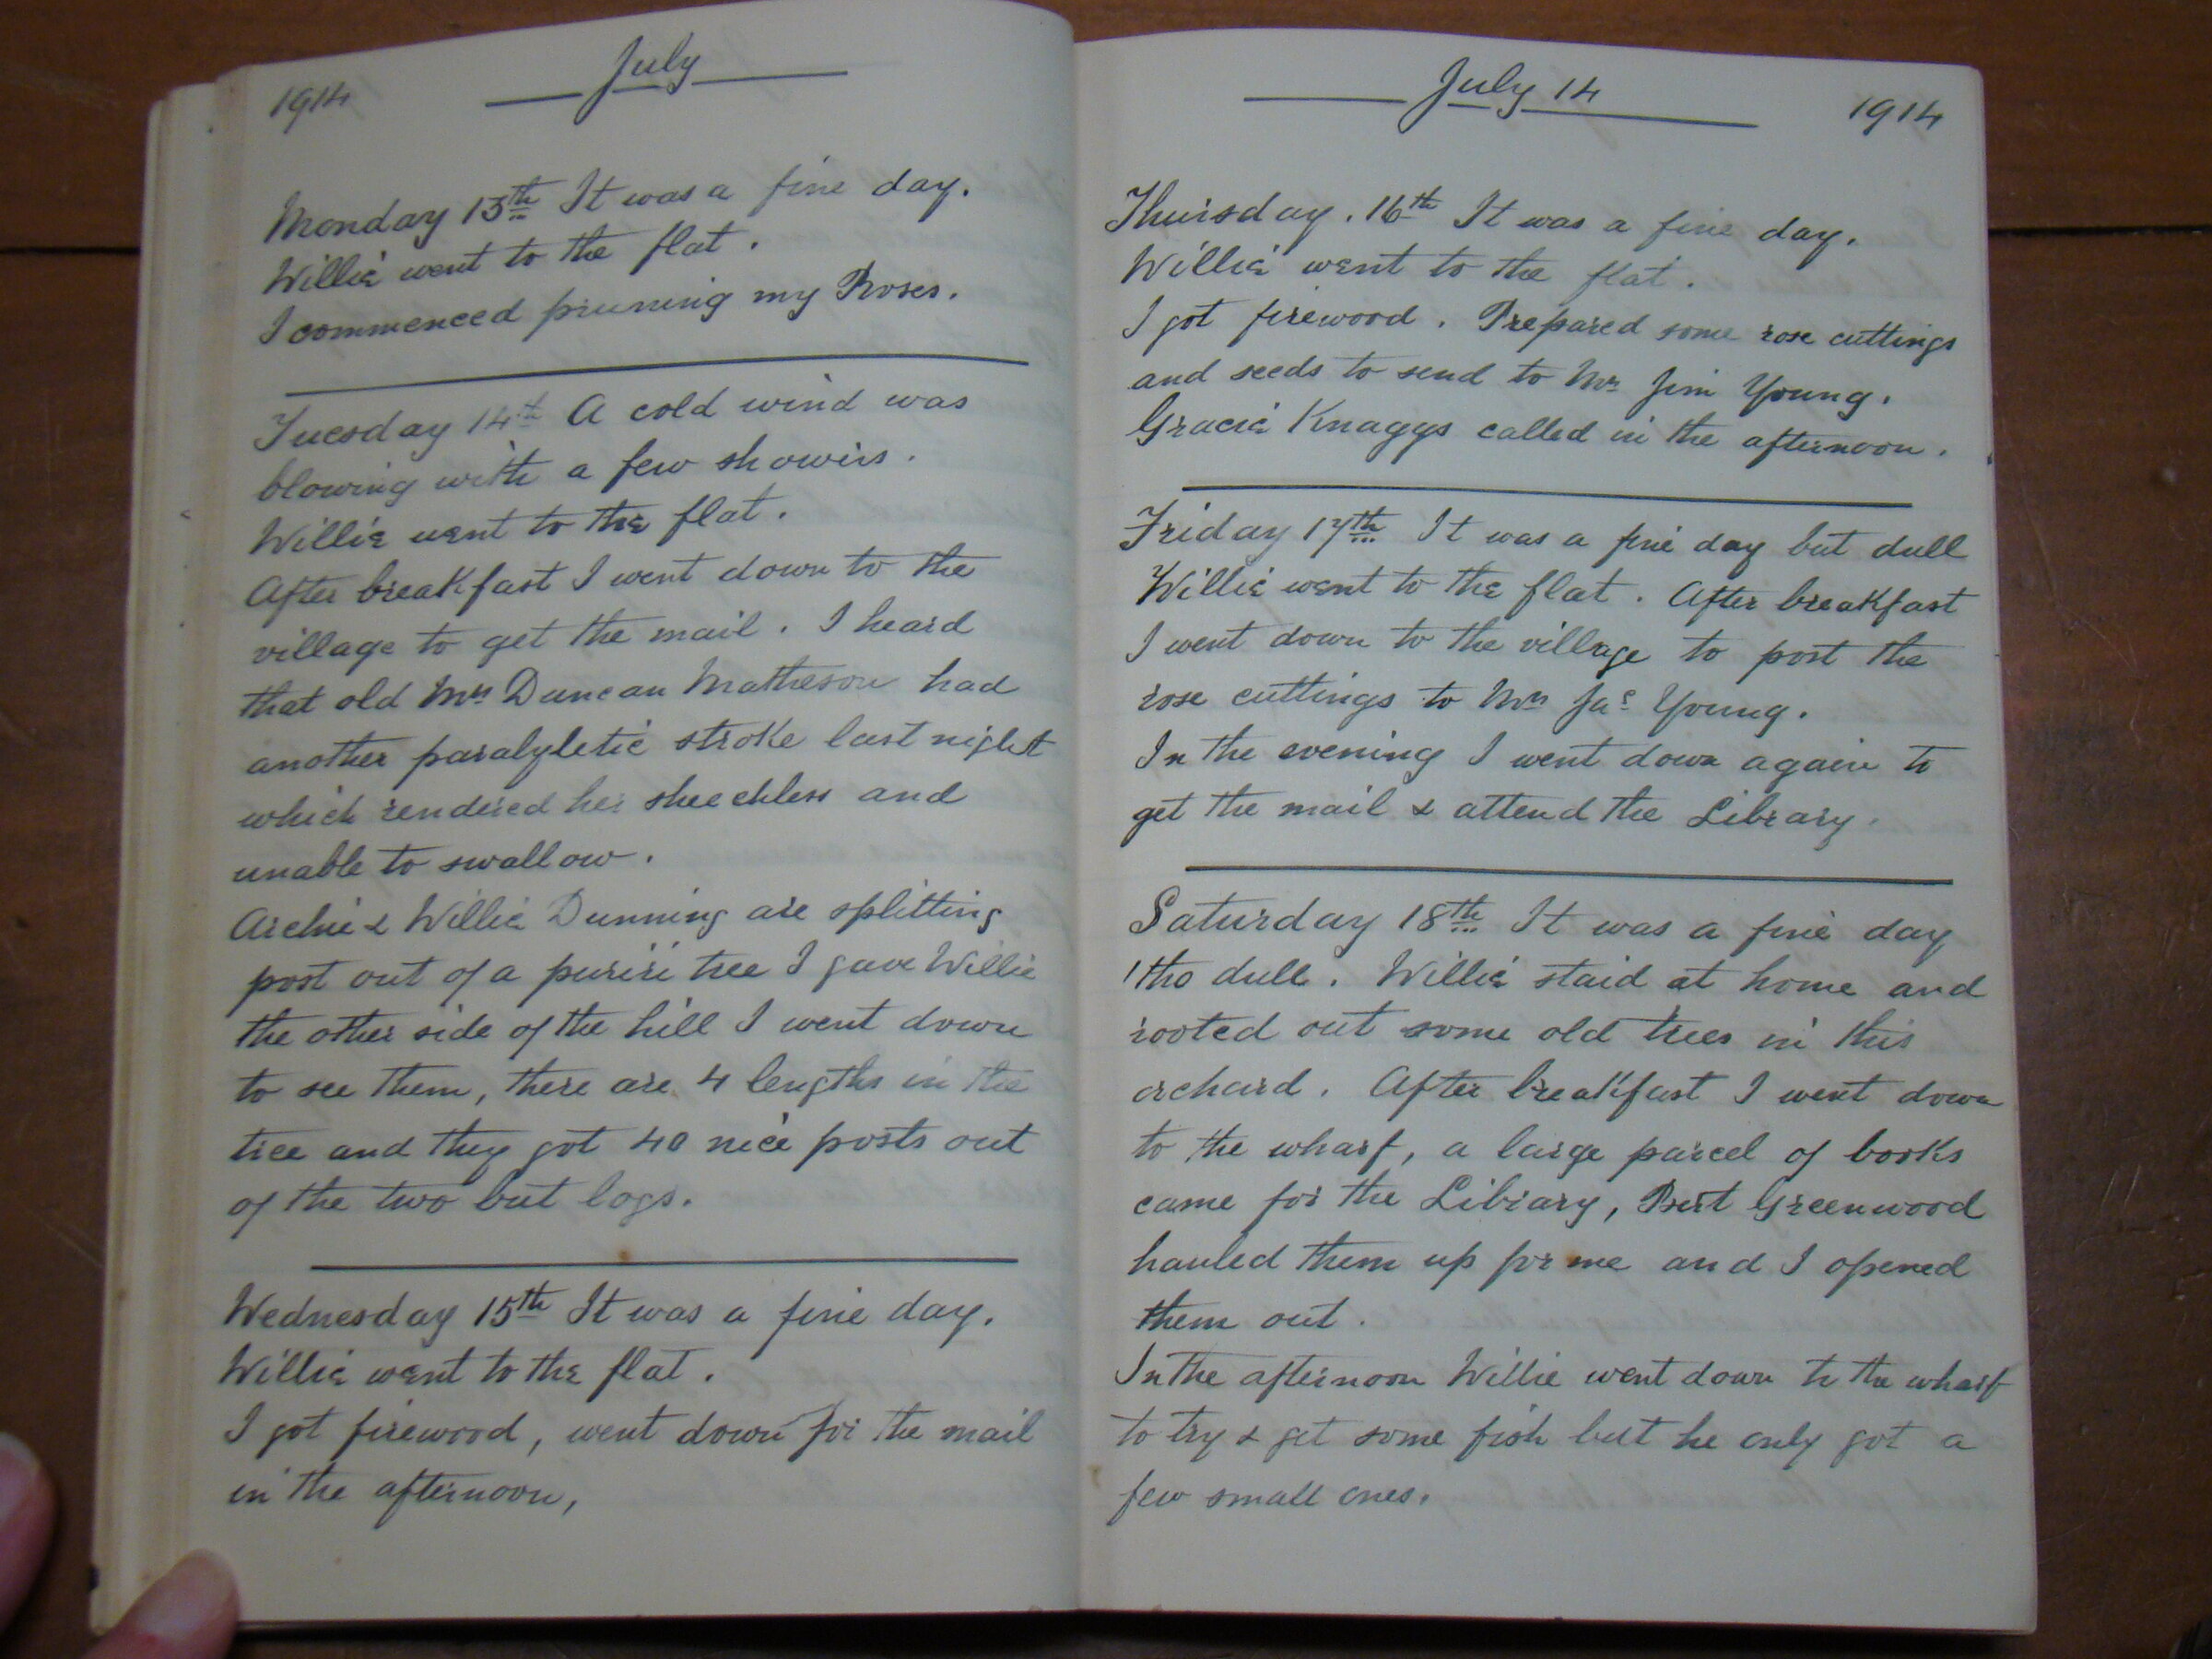 1914 July
Monday 13th It was a fine day.
Willie went to the flat.
I commenced pruning my Roses.
Tuesday 14th A cold wind was
blowing with a few showers.
Willie went to the flat.
After breakfast I went down to the
village to get the mail. I heard
that old Mrs Duncan Matheson had
another paralyletic stroke last night
which rendered her sheechless and
unable to swallow.
Archie & Willie Dunning are splitting
post out of a puriri tree I gave Willie
the other side of the hill I went down
to see them, there are 4 lengths in the
tree and they got 40 nice posts out
of the two but logs.
Wednesday 15th It was a fine day.
Willie went to the flat.
I got firewood, went down for the mail
in the afternoon,
July 14 1914
Thursday. 16th It was a fine day.
Willie went to the flat.
I got firewood. Prepared some rose cuttings
and seeds to send to Mrs Jim Young.
Gracie Knaggs called in the afternoon.
Friday 17th It was a fine day but dull
Willie went to the flat. After breakfast
I went down to the village to post the
rose cuttings to Mrs Jas Young.
In the evening I went down again to
get the mail & attend the Library.
Saturday 18th It was a fine day
'tho dull. Willie staid at home and
rooted out some old trees in this
orchard. After breakfast I went down
to the wharf, a large parcel of books
came for the Library, Burt Greenwood
hauled them up for me and I opened
them out.
In the afternoon Willie went down to the wharf
to try & get some fish but he only got a
few small ones.